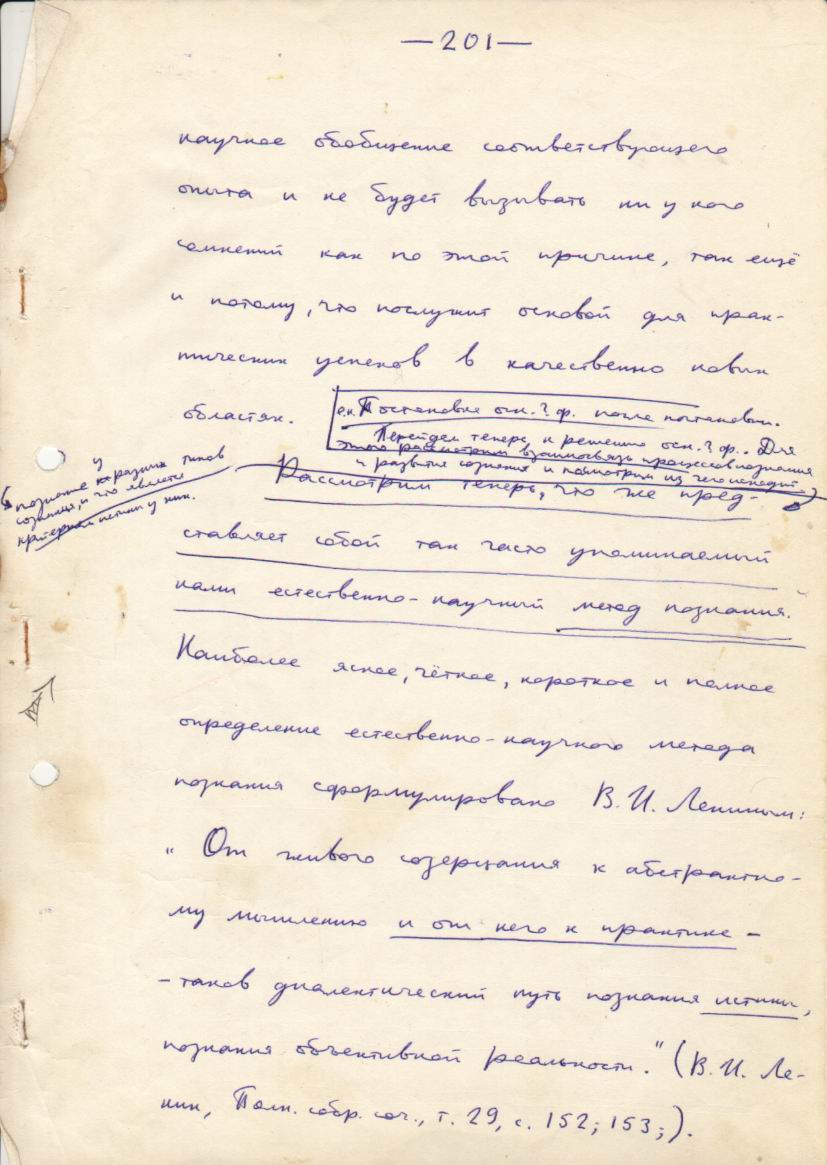 —201—
научное обобщение соответствующего
опыта и не будет вызывать ни у кого
сомнений как по этой причине, так ещё
и потому, что послужит основой для прак-
тических успехов в качественно новых
областях.
Постановка осн. ? ф. после
Перейдем теперь к решению осн. ? ф.. Для
этого рассмотрим взаимосвязь процессов познания
и развития сознания и посмотрим из чего исходит
у
познание разных типов
сознания, и что является
критерием истины у них.
Рассмотрим теперь, что же пред-
ставляет собой так часто упоминаемый
нами естественно-научный метод познания.
Наиболее ясное, чёткое, короткое и полное
определение естественно-научного метода
познания сформулировано В. И. Лениным:
„ От живого созерцания к абстрактно-
му мышлению и от него к практике –
– таков диалектический путь познания истины,
познания объективной реальности." (В. И. Ле-
нин, Полн. собр. соч., т. 29, с. 152; 153;).